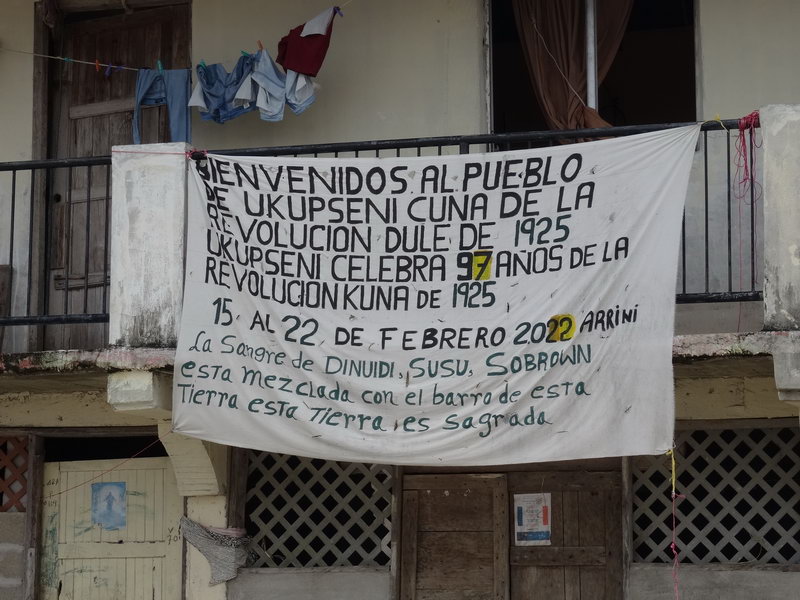 BIENVENIDOS AL PUEBLO
DE UKUPSENI CUNA DE LA
REVOLUCION DULE DE 1925
UKUPSENI CELEBRA 97 AÑOS DE LA
REVOLUCION KUNA DE 1925
15 AL 22 DE FEBRERO 2022 ARRINI
La Sangre de DINUIDI, SUSU, SOBROWN
esta mezclada con el barro de esta
Tierra esta Tierra es sagrada